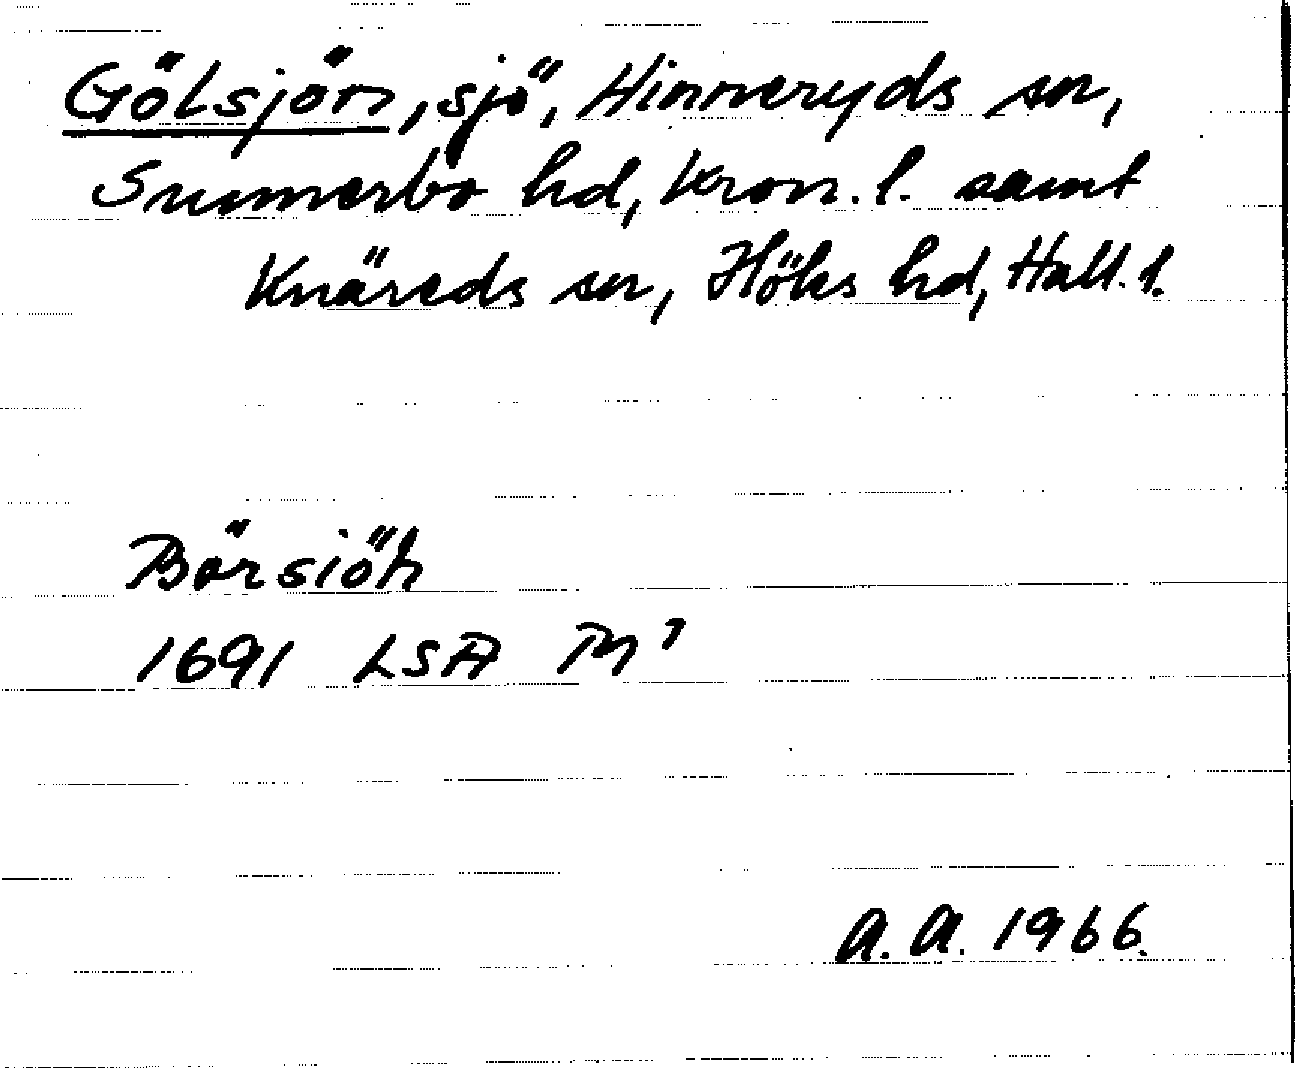 Gölsjön, sjö, Hinneryds sn,
Sunnerbo hd, Kron. l. samt
Knäreds sn, Höks hd, Hall. l.
Börsiöh
1691 LSA M¹
A. A. 1966.